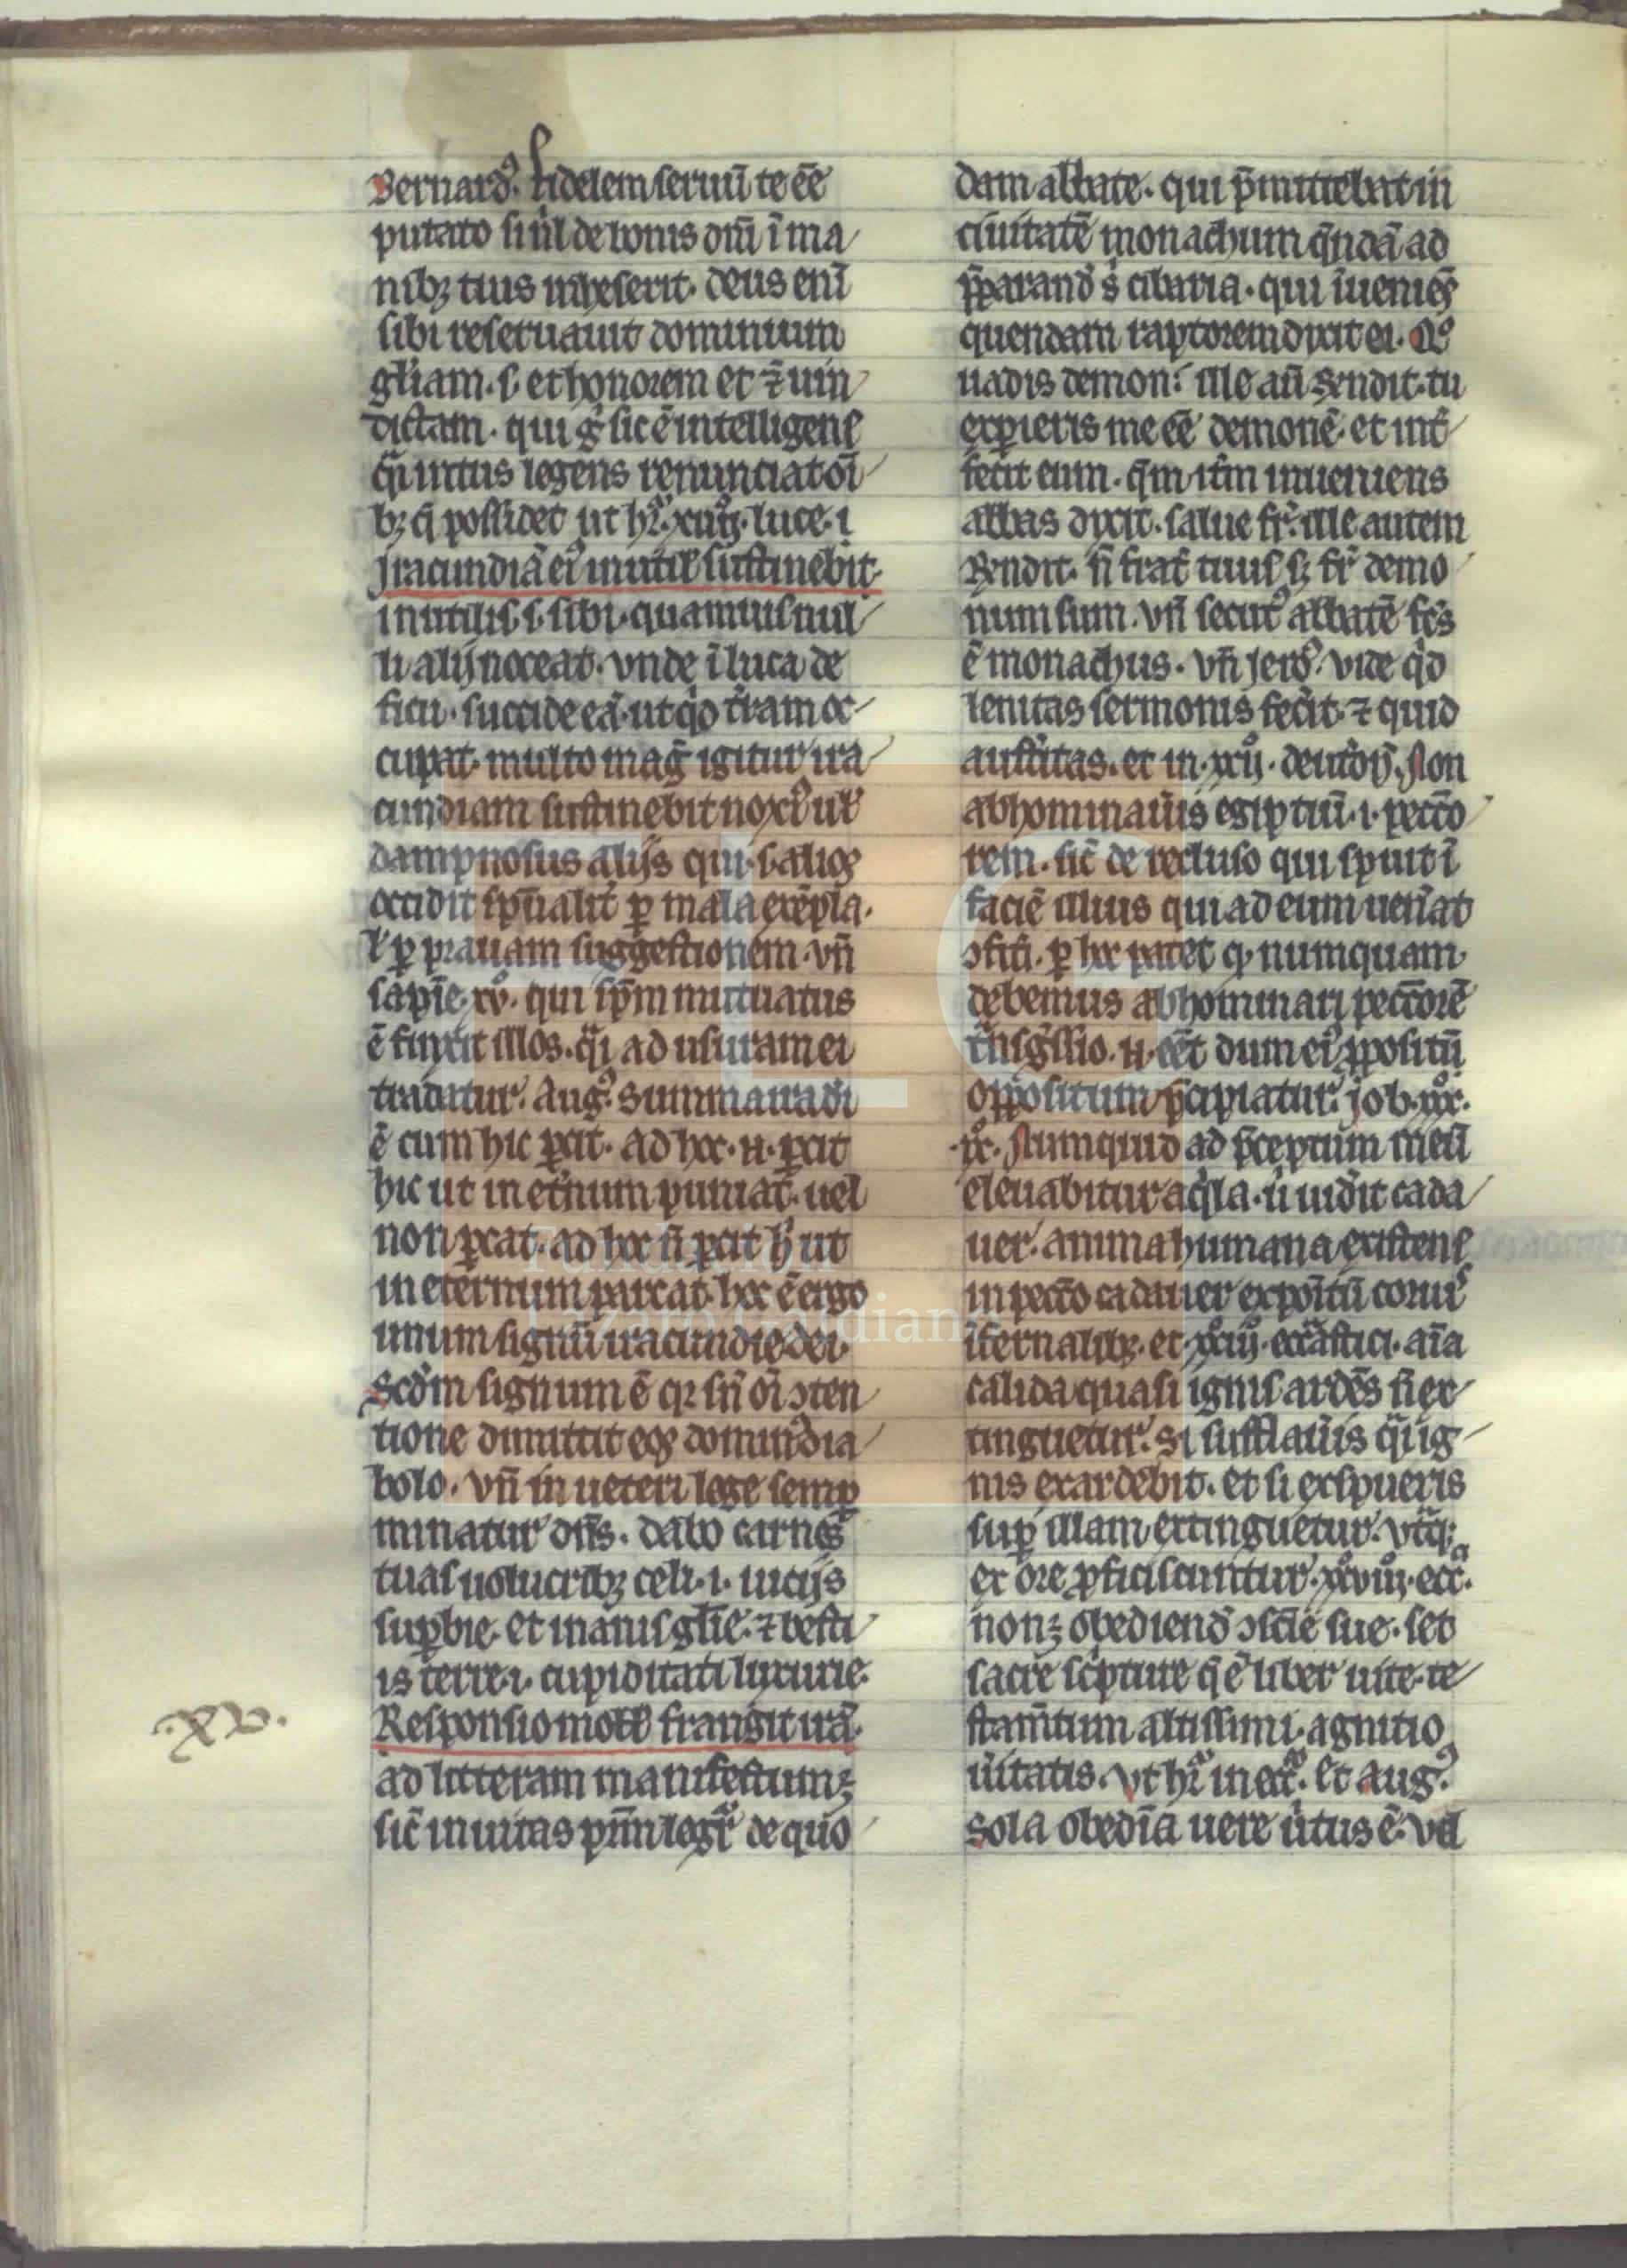 Bernard᷒. fidelem seruū te ēe
putato si nl̄ de bonis dn̄i ī ma
nibꝫ tuis inheserit. deus enī
sibi reseruauit dominium
gl̄iam. s. et honorem et ⁊ uin
dictam. qui gͦ sic ē intelligens
q̄i intus legens renunciat oī
bꝫ q̄ possidet ut hr̄. xiiii. luce. i
Iracundiā ei᷒ inutil̄ sustinebit.
inutilis. s. sibi. quamuis nul
li alij noceat. vnde ī luca de
ficu. succide eā. ut qͥd t̄ram oc
cupat. multo maḡ igitur ira
cundiam sustinebit nox᷒ ul̄
dampnosus alijs qui. s. alios
occidit sp̄ualit̄ ꝑ mala exēpla.
l̄ ꝑ prauam suggestionem. vn̄
sapīe. xv. qui sp̄m mutuatus
ē finxit illos. q̄i ad usuram ei
tradatur. Aug᷒. Summa ira dī
ē cum hic ꝑcit. ad hoc. n̄. ꝑcit
hic ut in et̄num puniat. uel
non ꝑcat. ad hoc n̄ ꝑcit hͥ ut
in eternum parcat. hoc ē ergo
unum signū iracundie dei.
Scd̄m signum ē qꝛ sn̄ oī ↄten
tione dimittit eos domin͛ dia
bolo. vn̄ in ueteri lege semꝑ
minatur dn̄s. dabo carnes
tuas uolucribꝫ celi. i. uicijs
suꝑbie. et inanis gl̄ie. ⁊ besti
is terre. i. cupiditati luxurie.
.xv.
Responsio moll̄ frangit irā.
ad litteram manifestum ē
sic̄ in uitas pr̄m legͥr de quo
dam abbate. qui p̄mittebat in
ciuitatē monachum q̄ndā ad
p̄parand᷒ s cibaria. qui īueniēs
quendam raptorem dixit ei. Qͦ
uadis demon? ille aū r̄ndit. tu
exꝑieris me ēe demonē. et int̄
fecit eum. q̄m it̄m inueniens
abbas dixit. salue fr̄. ille autem
r̄ndit. n̄ frat̄ tuus sꝫ fr̄ demo
num sum. vn̄ secut᷒ abbatē fc̄s
ē monachus. vn̄ Jero᷒. vide qͥd
lenitas sermonis fecit. ⁊ quid
aust̄itas. et in. xxiij. deut̄oij. Non
abhominaūis egiptiū. i. pecc̄o
rem. sic̄ de recluso qui spuit ī
faciē illius qui ad eum uen̄at
ↄfit̄i. ꝑ hoc patet q̄ numquam
debemus abhominari pecc̄orē
t̄nsg̍ssio. n̄. ēet dum ei᷒ ꝓpositū
oppositum p̄cipiatur. Job. xxx.
ix. Numquid ad p̄ceptum meū
eleuabitur aqͥla. ū uidit cada
uer. anima humana existens
in pecc̄o cadauer expōitū coruis
īfernalibꝫ. et xxiii. ecc̄astici. aīa
calida quasi ignis ardēs n̄ ex
tinguetur. Si sufflaūis q̄i ig
nis exardebit. et si exspueris
suꝑ illam extinguetur. vt͛qꝫ
ex ore ꝓficiscuntur. xxviii. ecc̄.
non ē obediend᷒ ↄsc̄ie sue. set
sacre sc̍pture q̄ ē liber uite. te
stam̄tum altissimi. agnitio
ūitatis. vt hr̄ in ecc̄. et Aug᷒.
Sola obedīa uere ūtus ē. vel
FLG
Fundación
Lázaro Galdiano